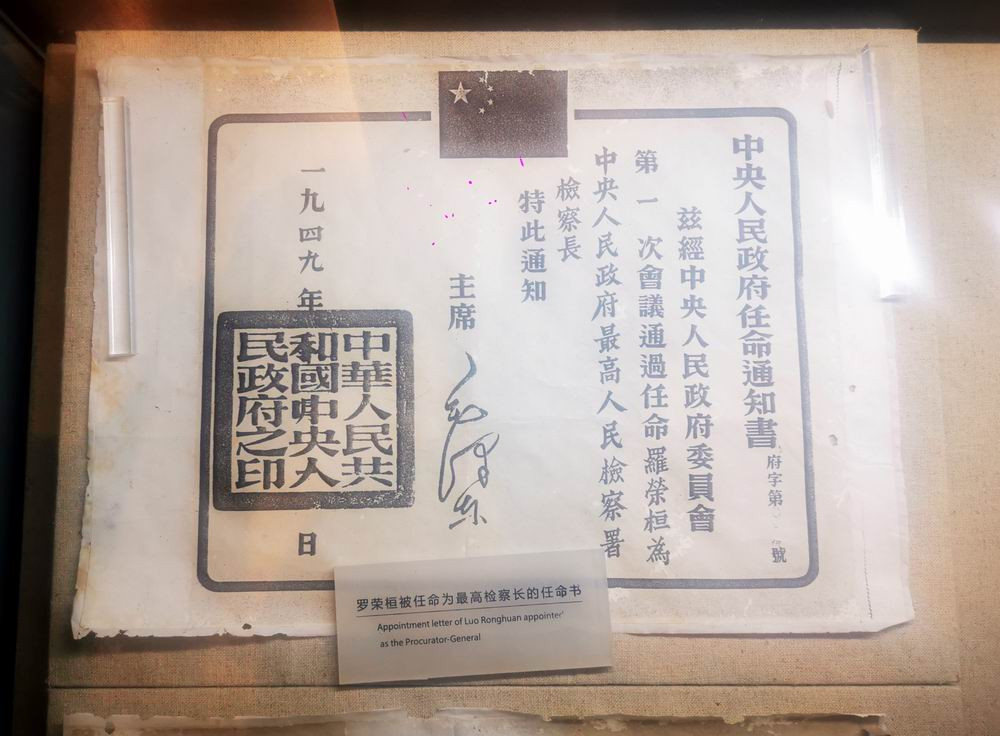 中央人民政府任命通知書
府字第 號
兹經中央人民政府委員會
第一次會議通過任命羅榮桓為
中央人民政府最高人民檢察署
檢察長
特此通知
主席 毛澤東
一九四九年 日
中華人民共
和國中央人
民政府之印
罗荣桓被任命为最高检察长的任命书
Appointment letter of Luo Ronghuan appointer'
as the Procurator-General